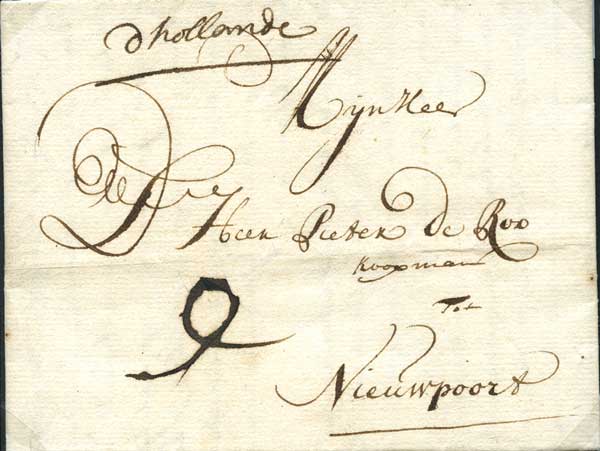 d'hollande
Mijn Heer
De Heer Pieter de Rox
koopman
Tot
Nieuwpoort